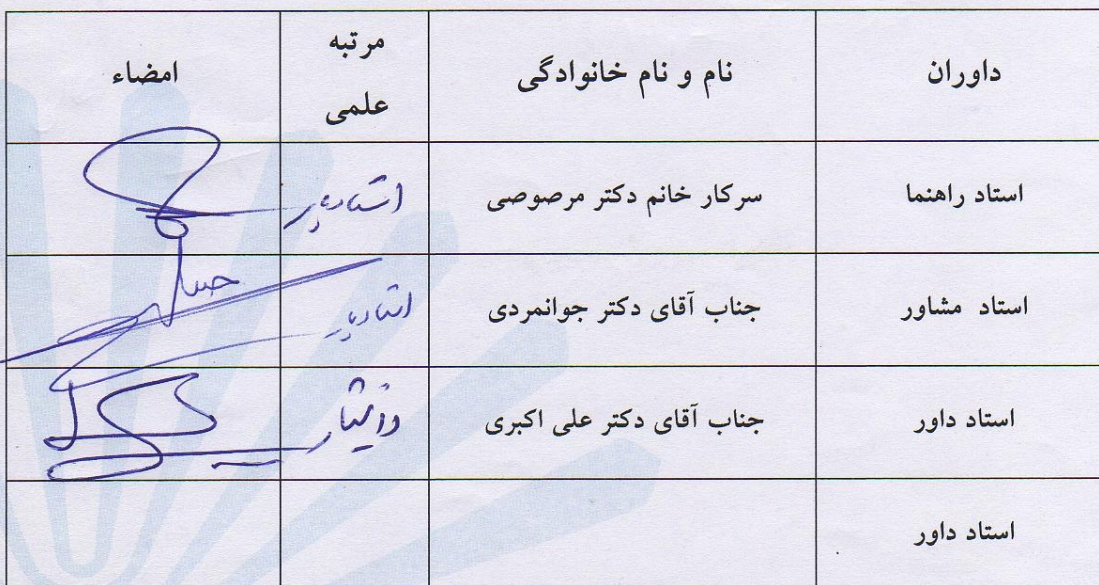 داوران نام و نام خانوادگی مرتبه علمی امضاء
استاد راهنما سرکار خانم دکتر مرصوصی استادیار
استاد مشاور جناب آقای دکتر جوانمردی استادیار
استاد داور جناب آقای دکتر علی اکبری دانشیار
استاد داور